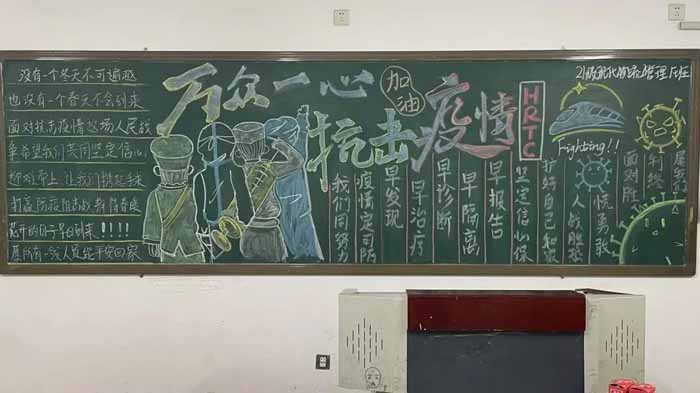 没有一个冬天不可逾越
也没有一个春天不会到来
面对抗击疫情这场人民战
争希望我们共同坚定信心
让我们携起手来
打赢防疫阻击战
早日到来!!!!
愿所有一线人员能平安回家
万众一心
加油
抗击疫情
HRTC
Fighting!!
我们同努力
疫情定可防
早发现
早治疗
早诊断
早隔离
早报告
坚定信心保
护好自己和家
人战胜
慌勇敢
面对胜
利终
属我们